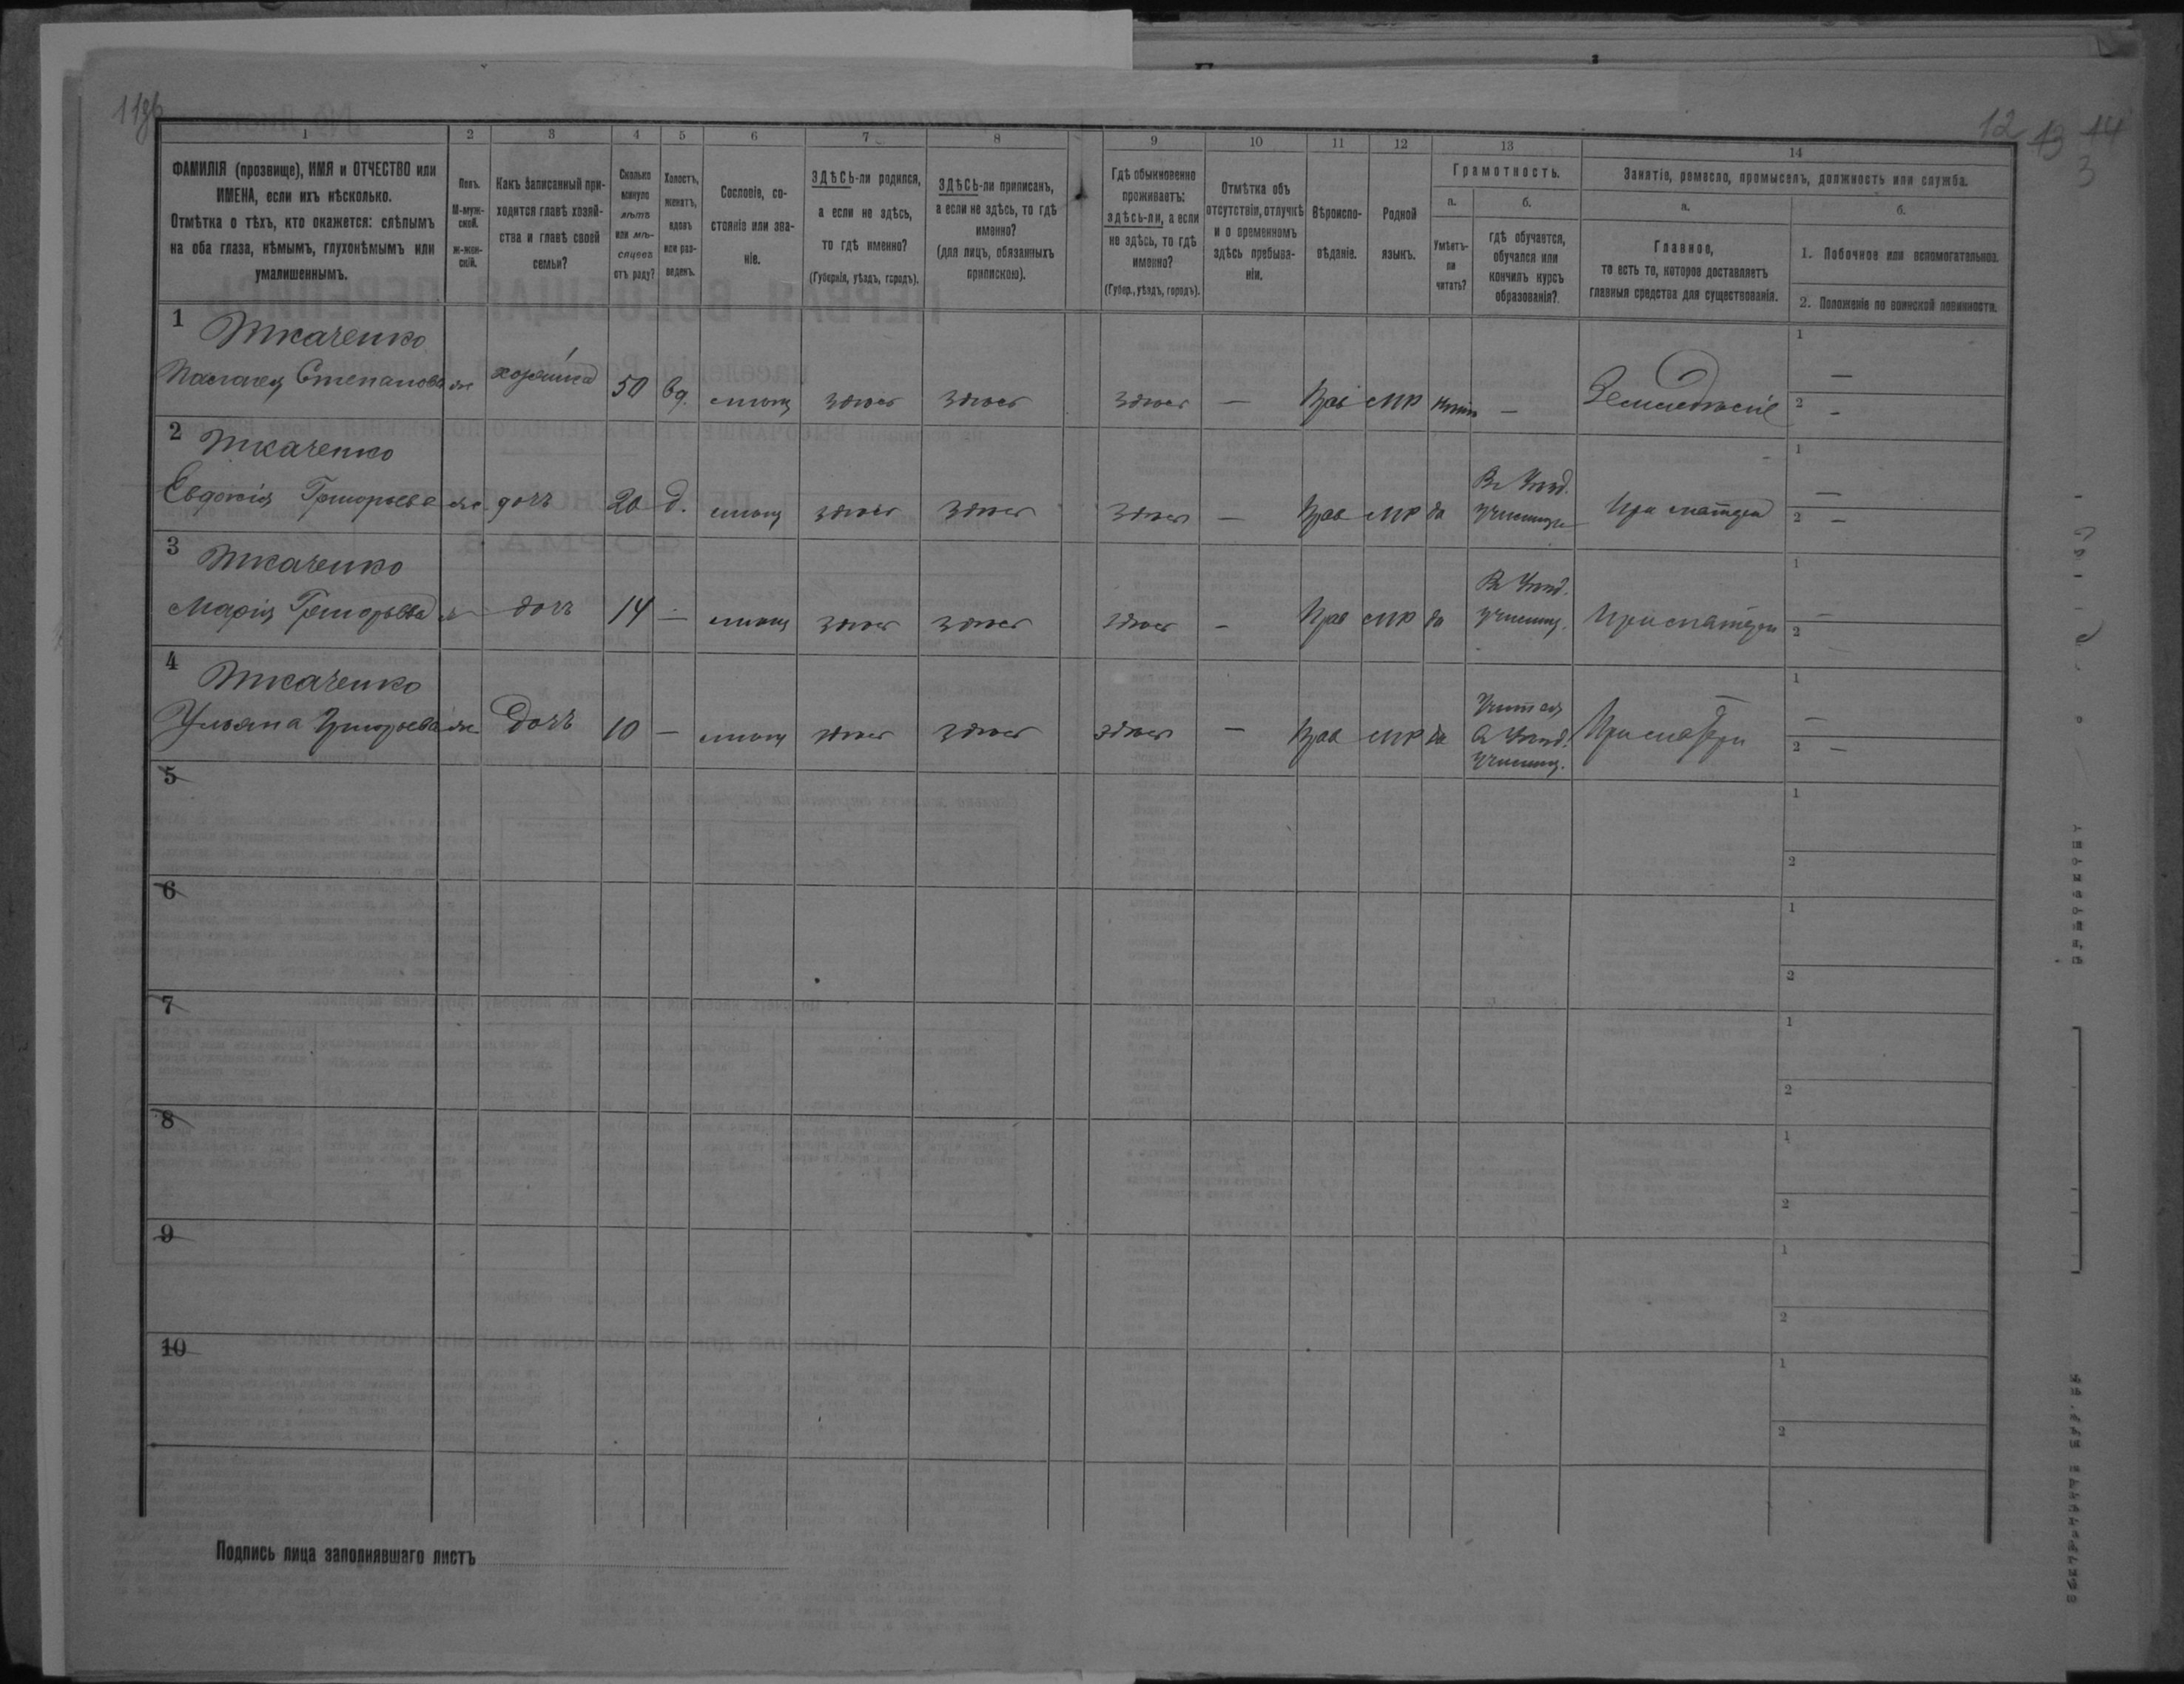 12 13 14
3
1 2 3 4 5 6 7 8 9 10 11 12 13 14
ФАМИЛІЯ (прозвище), ИМЯ и ОТЧЕСТВО или
ИМЕНА, если ихъ нѣсколько.
Отмѣтка о тѣхъ, кто окажется: слѣпымъ
на оба глаза, нѣмымъ, глухонѣмымъ или
умалишеннымъ.
Полъ.
М-муж-
ской.
ж-жен-
скій.
Какъ записанный при-
ходится главѣ хозяй-
ства и главѣ своей
семьи?
Сколько
минуло
лѣтъ
или мѣ-
сяцевъ
отъ роду?
Холостъ,
женатъ,
вдовъ
или раз-
веденъ.
Сословіе, со-
стояніе или зва-
ніе.
ЗДѢСЬ-ли родился,
а если не здѣсь,
то гдѣ именно?
(Губернія, уѣздъ, городъ).
ЗДѢСЬ-ли приписанъ,
а если не здѣсь, то гдѣ
именно?
(для лицъ, обязанныхъ
припискою).
Гдѣ обыкновенно
проживаетъ:
здѣсь-ли, а если
не здѣсь, то гдѣ
именно?
(Губер., уѣздъ, городъ).
Отмѣтка объ
отсутствіи, отлучкѣ
и о временномъ
здѣсь пребыва-
ніи.
Вѣроиспо-
вѣданіе.
Родной
языкъ.
Грамотность.
а.
Умѣетъ-
ли
читать?
б.
гдѣ обучается,
обучался или
кончилъ курсъ
образованія?
Занятіе, ремесло, промыселъ, должность или служба.
а.
Главное,
то есть то, которое доставляетъ
главныя средства для существованія.
б.
1. Побочное или вспомогательное.
2. Положеніе по воинской повинности.
1 Ткаченко
Степанова ж хозяйка 50 вд. здесь здесь здесь — Прав МР — Земледеліе 1 — 2 —
2 Ткаченко
Евдокія Григорьева ж дочь 20 д. здесь здесь здесь — Прав МР да При матери 1 — 2 —
3 Ткаченко
Марія Григорьева ж дочь 14 — здесь здесь здесь — Прав МР да При матери 1 — 2
4 Ткаченко
Ульяна Григорьева ж Дочь 10 — здесь здесь здесь — Прав МР да При матери 1 — 2 —
5 1 2
6 1 2
7 1 2
8 1 2
9 1 2
10 1 2
Подпись лица заполнявшаго листъ